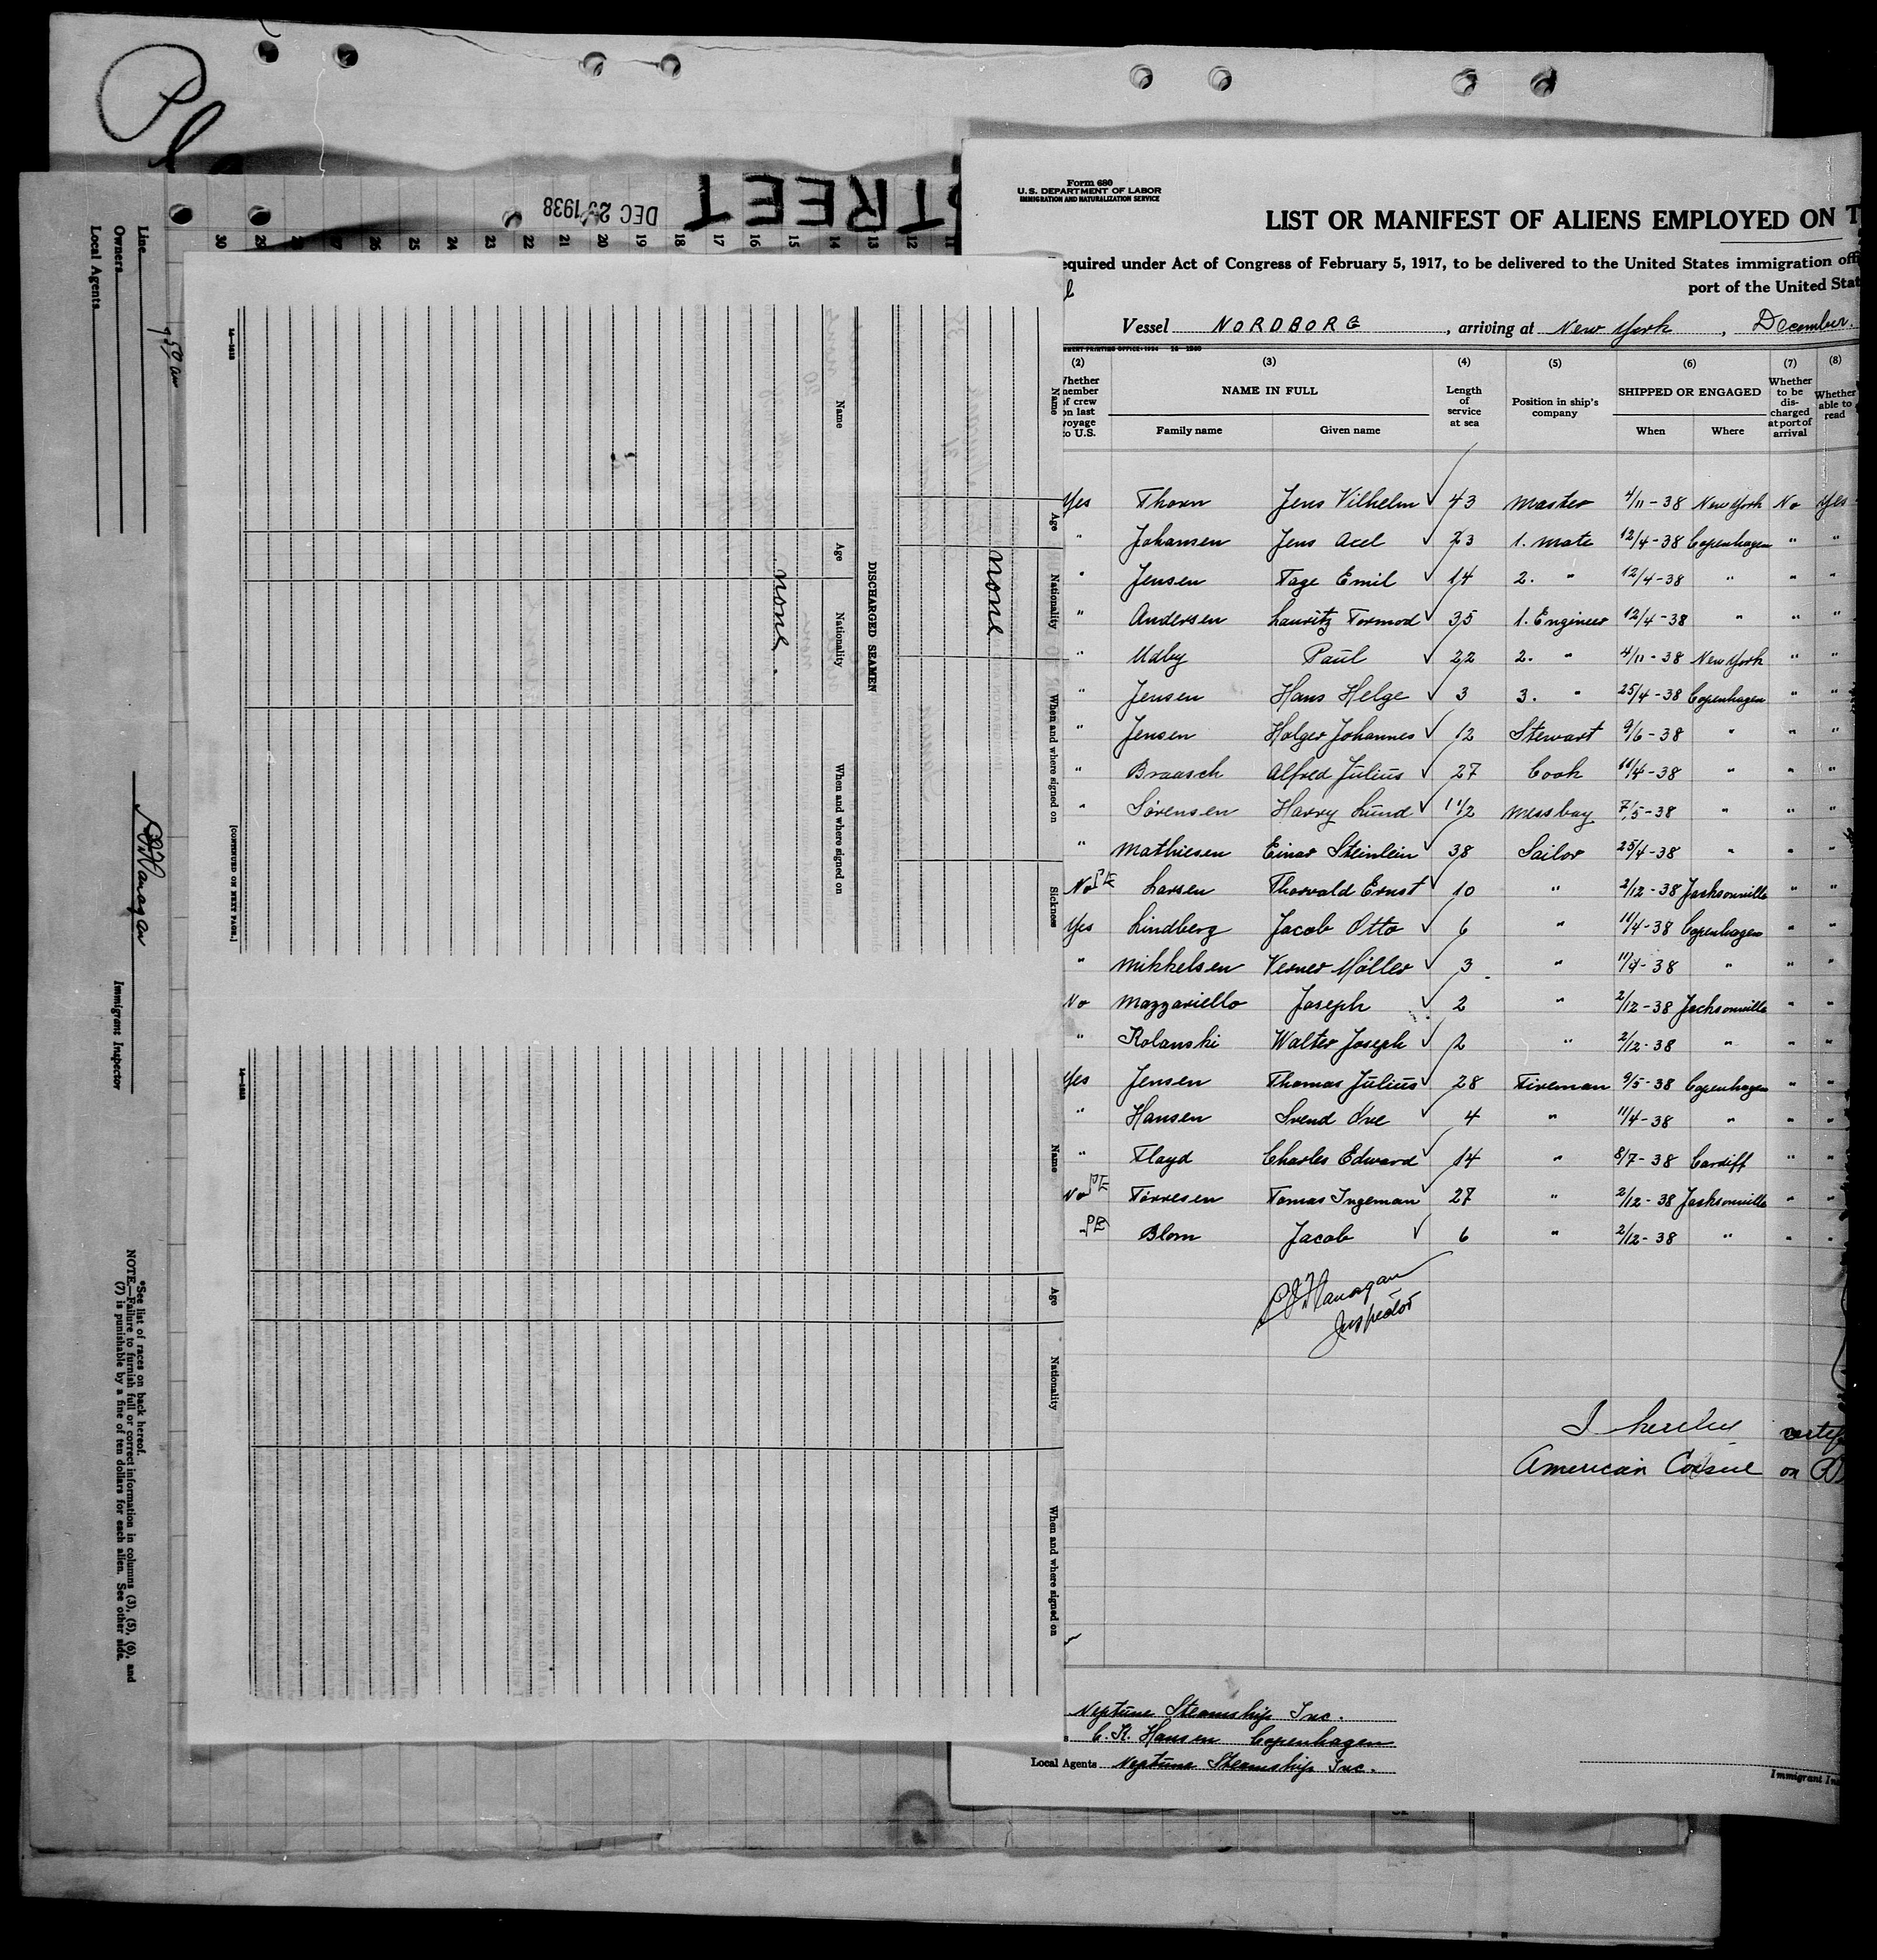 STREET
DEC 29 1938
30 29 28 27 26 25 24 23 22 21 20 19 18 17 16 15 14 13 12 11
Line
Owners
Local Agents
9 50 am
Immigrant Inspector
*See list of races on back hereof.
NOTE.—Failure to furnish full or correct information in columns (3), (5), (6), and
(7) is punishable by a fine of ten dollars for each alien. See other side.
Name Age Nationality When and where signed on Sickness
none
DISCHARGED SEAMEN
Name Age Nationality When and where signed on
none.
[CONTINUED ON NEXT PAGE.]
Name Age Nationality When and where signed on
Form 680
U.S. DEPARTMENT OF LABOR
IMMIGRATION AND NATURALIZATION SERVICE
LIST OR MANIFEST OF ALIENS EMPLOYED ON T
equired under Act of Congress of February 5, 1917, to be delivered to the United States immigration offi
port of the United Stat
Vessel NORDBORG, arriving at New York, December.
(2) (3) (4) (5) (6) (7) (8)
Whether member of crew on last voyage to U.S.
NAME IN FULL
Family name Given name
Length of service at sea
Position in ship's company
SHIPPED OR ENGAGED
When Where
Whether to be discharged at port of arrival
Whether able to read
Yes Thorn Jens Vilhelm ✓ 43 Master 4/11-38 New York No Yes
" Johansen Jens Axel ✓ 23 1. Mate 12/4-38 Copenhagen " "
" Jensen Tage Emil ✓ 14 2. " 12/4-38 " " "
" Andersen Lauritz Tormod ✓ 35 1. Engineer 12/4-38 " " "
" Udby Paul ✓ 22 2. " 4/11-38 New York " "
" Jensen Hans Helge ✓ 3 3. " 25/4-38 Copenhagen " "
" Jensen Holger Johannes ✓ 12 Stewart 9/6-38 " " "
" Braasch Alfred Julius ✓ 27 Cook 11/4-38 " " "
" Sørensen Harry Lund ✓ 1 1/2 Messboy 7/5-38 " " "
" Mathiesen Einar Steinlein ✓ 38 Sailor 25/4-38 " " "
No PE Larsen Thorvald Ernst ✓ 10 " 2/12-38 Jacksonville " "
Yes Lindberg Jacob Otto ✓ 6 " 11/4-38 Copenhagen " "
" Mikkelsen Verner Möller ✓ 3 " 11/4-38 " " "
No Mazzariello Joseph ✓ 2 " 2/12-38 Jacksonville " "
" Rolanski Walter Joseph ✓ 2 " 2/12-38 " " "
Yes Jensen Thomas Julius ✓ 28 Fireman 9/5-38 Copenhagen " "
" Hansen Svend Ove ✓ 4 " 11/4-38 " " "
" Floyd Charles Edward ✓ 14 " 8/7-38 Cardiff " "
No PE Torresen Tomas Ingeman ✓ 27 " 2/12-38 Jacksonville " "
" PE Blom Jacob ✓ 6 " 2/12-38 " " "
Flanagan
Inspector
I hereby certif
American Consul on
Neptune Steamship Inc.
C. K. Hansen Copenhagen
Local Agents Neptune Steamship Inc.
Immigrant In